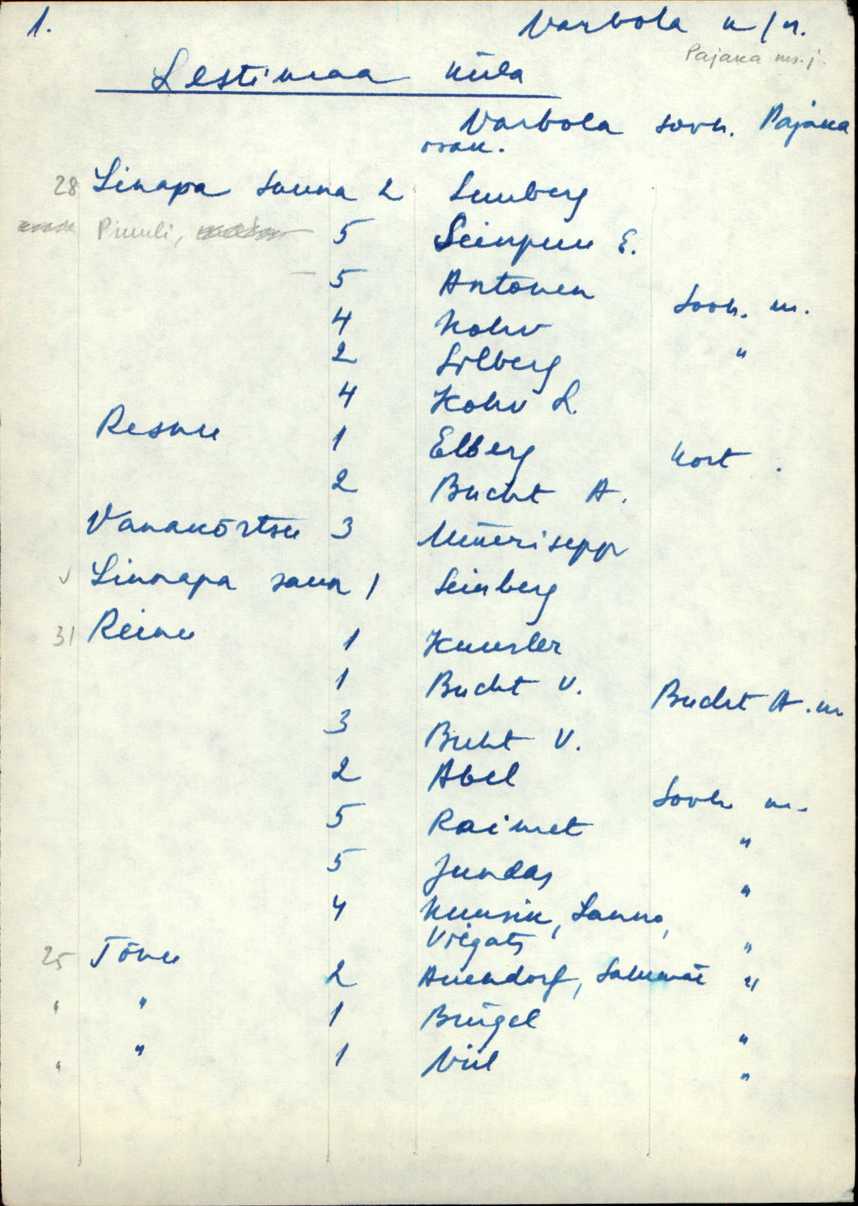 1. Varbola k/n.
Pajaka ms. j.
Lestimaa küla
Varbola sovh. Pajaka
osak.
28 Linapa sauna 2 Lumberg
Pinuli, 5 Leinpuu E.
5 Antonen Sovh. m.
4 Kohv "
2 Silberg
4 Kohv L.
Resnu 1 Elberg kort.
2 Bucht A.
Vanakõrtsu 3 Müürisepp
v Linnapa saun 1 Leinberg
31 Reinu 1 Kuusler
1 Bucht V. Bucht A. m
3 Buht V.
2 Abel Sovh m.
5 Raimet "
5 Jundas "
4 Kuusik, Launo,
Viegats "
25 Tõnu 2 Auendorf, Salumäe "
" " 1 Brügel "
" " 1 Viil "